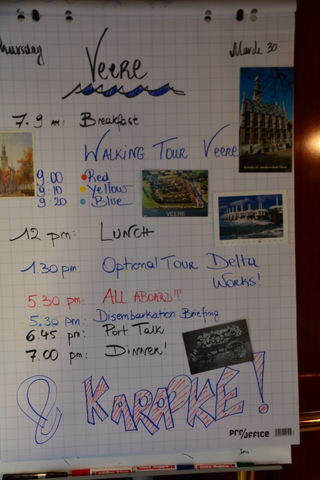 Thursday March 30
Veere
7-9 AM: Breakfast
Walking Tour Veere
9.00 Red
9.10 Yellow
9.20 Blue
VEERE
12 pm: LUNCH
1.30 pm: Optional Tour Delta
Works!
5.30 pm: ALL ABOARD!!!
5.30 pm: Disembarkation Briefing
6.45 pm: Port Talk
7.00 pm: Dinner!
& KARAOKE!
pro/office